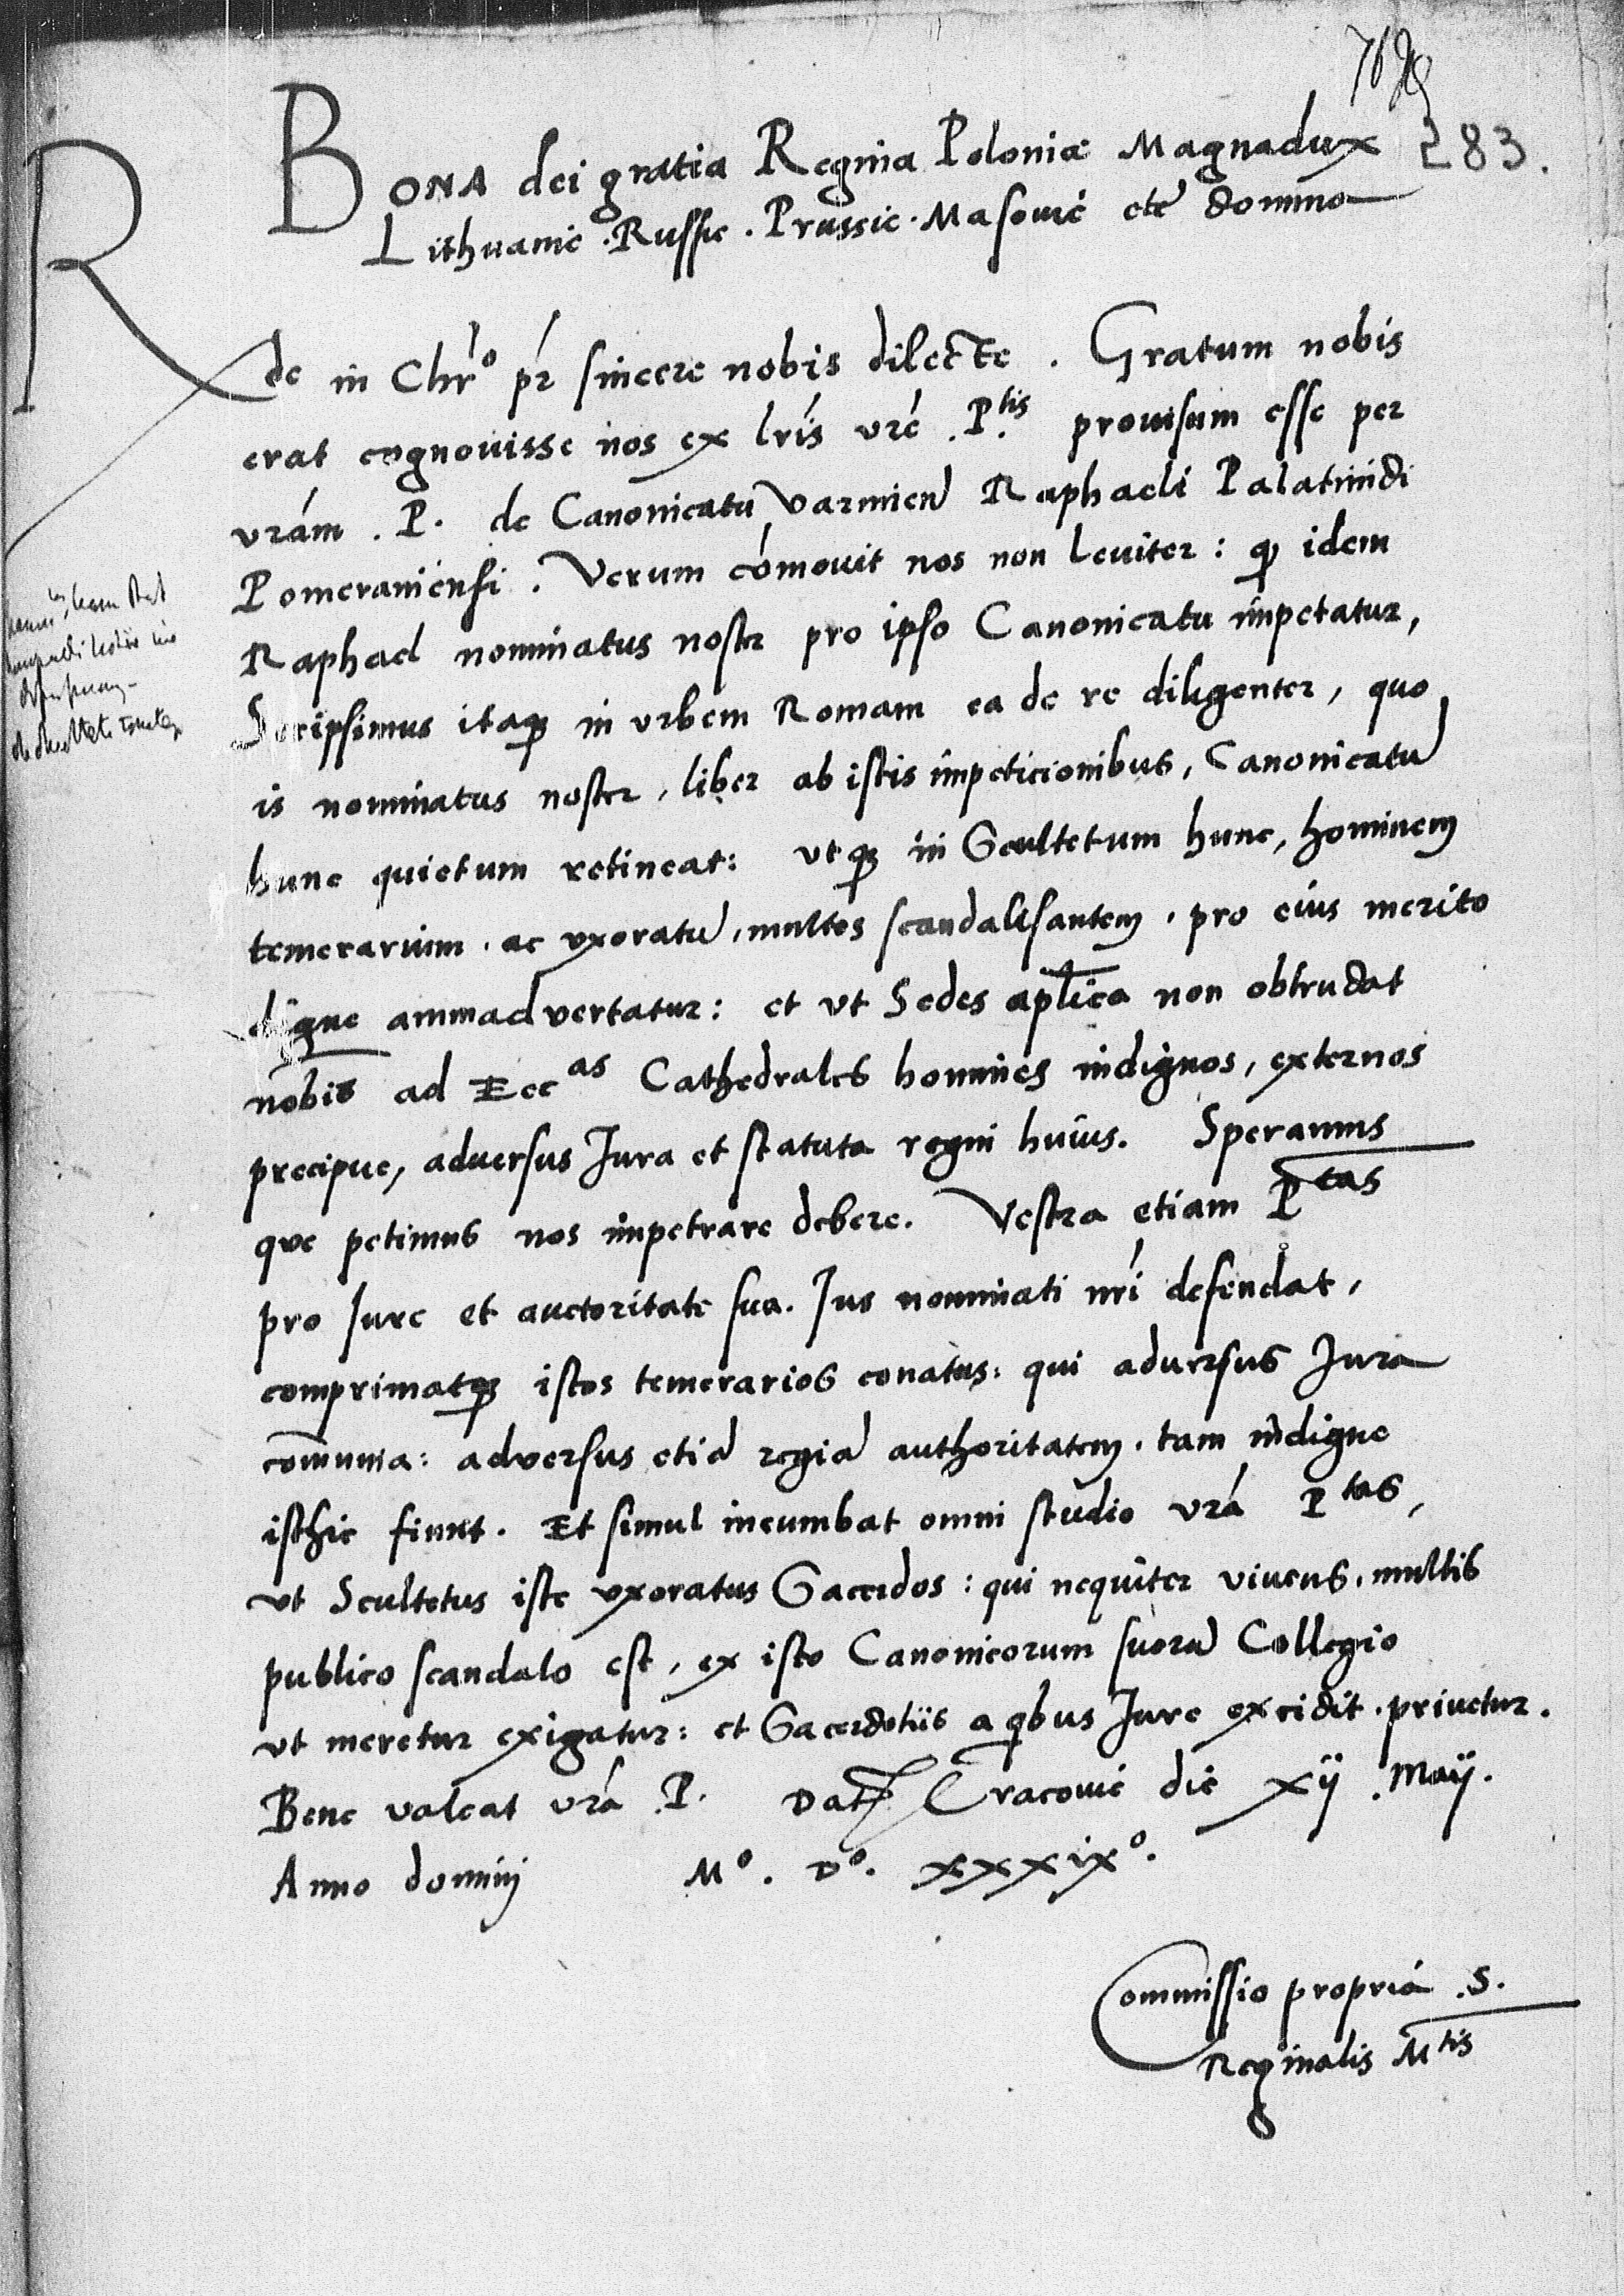 283.
BONA dei gratia Regina Poloniæ Magnadux
Lithuanie . Russie . Prussie . Masouie etc domina
Rde in Chro pr sincere nobis dilecte . Gratum nobis
erat cognouisse nos ex lris vre .P.tis prouisum esse per
vram . P . de Canonicatu Varmien Raphaeli Palatinidi
Pomeraniensi . Verum comouit nos non leuiter : q idem
Raphael nominatus noster pro ipso Canonicatu impetatur,
Scripsimus itaq in vrbem Romam ea de re diligenter, quo
is nominatus noster, liber ab istis impeticionibus, Canonicatu
hunc quietum retineat: vtq in Scultetum hunc, hominem
temerarium . ac vxoratu, multos scandalisantem . pro eius merito
digne animadvertatur : et vt Sedes aplica non obtrudat
nobis ad Eccas Cathedrales homines indignos, externos
precipue, aduersus Jura et statuta regni huius. Speramus
que petimus nos impetrare debere. Vestra etiam Ptas
pro Jure et auctoritate sua. Jus nominati nri defendat,
comprimatq istos temerarios conatus: qui aduersus Jura
comunia: adversus etia regia authoritatem . tam indigne
isthic fiunt . Et simul incumbat omni studio vra Ptas,
vt Scultetus iste vxoratus Sacerdos : qui nequiter viuens, multis
publico scandalo est, ex isto Canonicorum suoru Collegio
vt meretur exigatur: et Sacerdotiis a qbus Jure excidit . priuetur.
Bene valeat vra .P. Dat Cracouie die xij .Maij.
Anno domini Mo . Do . xxxixo .
Commissio propria .S.
Reginalis Mtis